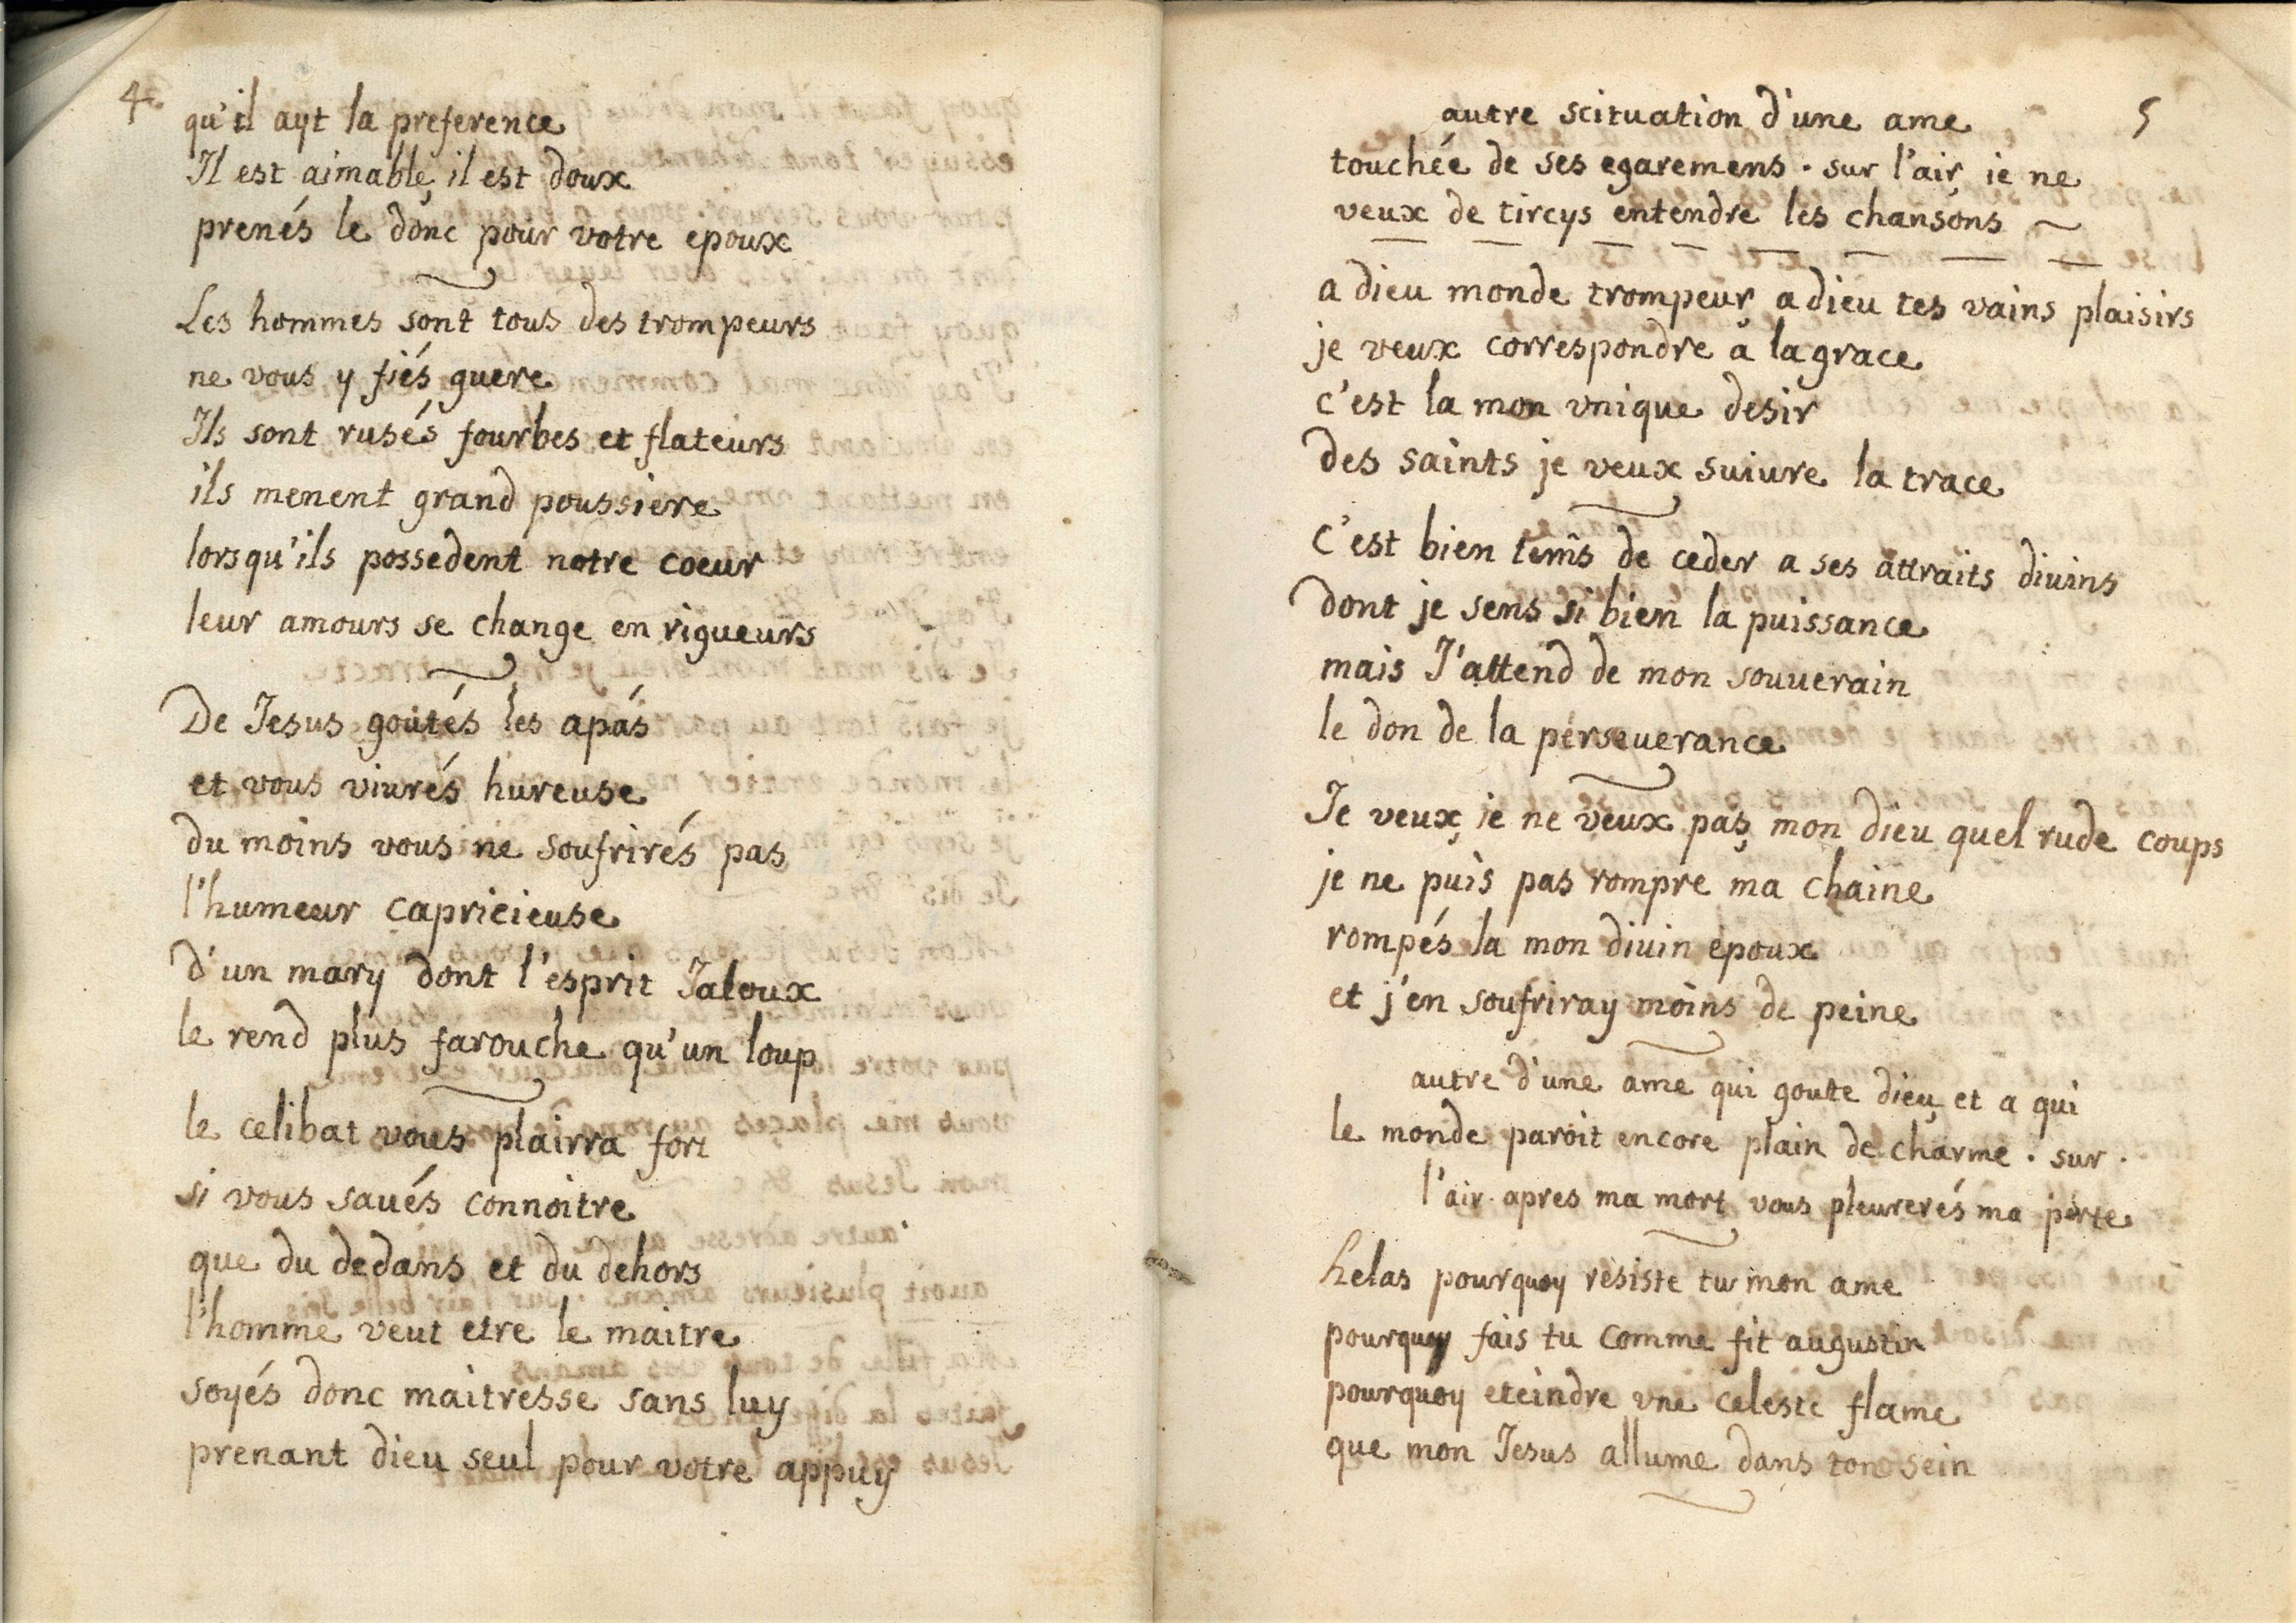 4
qu'il ayt la preference
Il est aimable, il est doux
prenés le donc pour votre epoux
Les hommes sont tous des trompeurs
ne vous y fiés guere
Ils sont rusés fourbes et flateurs
ils menent grand poussiere
lorsqu'ils possedent notre coeur
leur amours se change en rigueurs
De Jesus goutés les apás
et vous viurés hureuse
du moins vous ne soufrirés pas
l'humeur capricieuse
d'un mary dont l'esprit Jaloux
le rend plus farouche qu'un loup
le celibat vous plairra fort
si vous saués connoitre
que du dedans et du dehors
l'homme veut etre le maitre
soyés donc maitresse sans luy
prenant dieu seul pour votre appuy
5
autre scituation d'une ame
touchée de ses egaremens . sur l'air, ie ne
veux de tircys entendre les chansons ~
a dieu monde trompeur, a dieu tes vains plaisirs
je veux correspondre a la grace
c'est la mon vnique desir
des saints je veux suiure la trace
C'est bien tems de ceder a ses attraits diuins
dont je sens si bien la puissance
mais J'attend de mon souuerain
le don de la perseuerance
Je veux, ie ne veux pas, mon dieu quel rude coups
je ne puis pas rompre ma chaine
rompés la mon diuin epoux
et j'en soufriray moins de peine
autre d'une ame qui goute dieu, et a qui
le monde paroit encore plain de charme . sur .
l'air apres ma mort vous pleurerés ma perte
helas pourquoy resiste tu mon ame
pourquoy fais tu comme fit augustin
pourquoy eteindre vne celeste flame
que mon Jesus allume dans ton sein